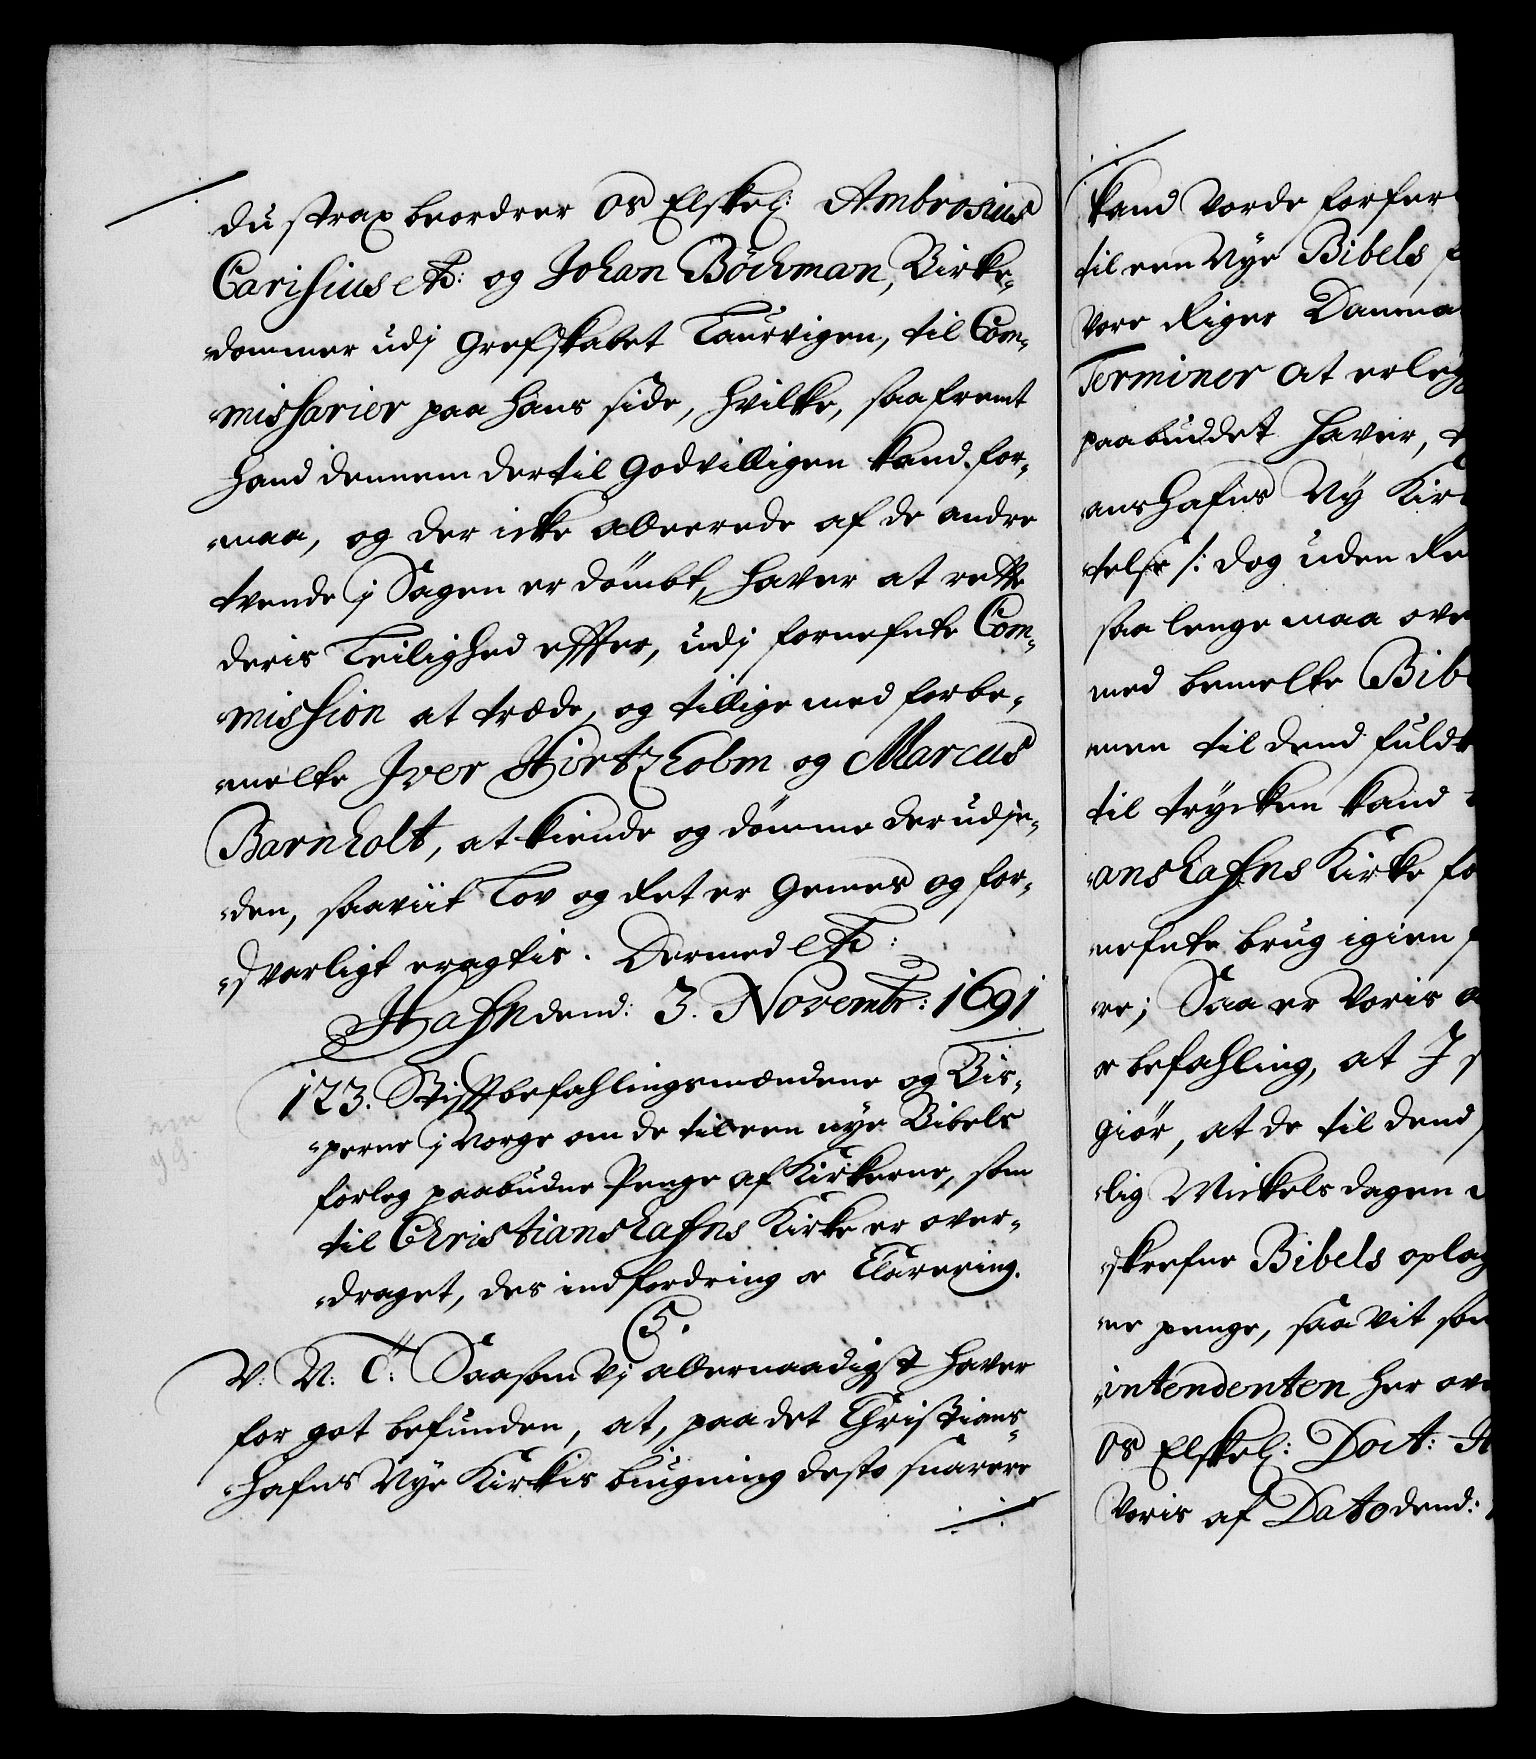 du strax beordrer os Elskel: Ambrosius
Carisius etc: og Johan Böchman, Birke-
dommer udj Grefskabet Laurvigen, til Com-
missarier paa hans side, hvilke, saafremt
hand dennem dertil godvilligen kand for-
maa, og der icke allereede af de andre
tvende j Sagen er dömbt, haver at rette
deris Leilighed effter, udj fornefnte Com-
mission at træde, og tillige med forbe-
melte Jver Hiortzholm og Marcus
Barnholt, at kiende og dömme derudje-
den, saaviit Lov og Ret er gemes og for-
svarligt eragtis. Dermed etc:
Hafn dend: 3. Novembr: 1691
123. Stifftbefahlingsmændene og Bis-
perne j Norge om de til een nye Bibels
forleg paabudne Penge af Kirkerne, som
til Christianshafns Kirke er over-
draget, des indfordring og Clarering.
C5.
V: N: C: Saasom Vj allernaadigst haver
for got befunden, at, paa det Christians-
hafns Nye Kirkis bygning desto snarere
kand vorde forfer
til een Nye Bibels
vore Riger Danma
Terminer at erleg
paabuddet haver,
anshafns Ny Kir
telse /: dog uden Re
saa lenge maa ove
med bemelte Bib
men til dend fuldk
til trycken kand
anshafns Kirke fo
nefnte brug igien
re; Saa er Voris
befahling, at J
giör, at de til dend
lig Mickels dagen
skrefne Bibels oplag
ne penge, saa vit som
intendenten her ov
os Elskel: Doct: H
Voris af Dato dend: